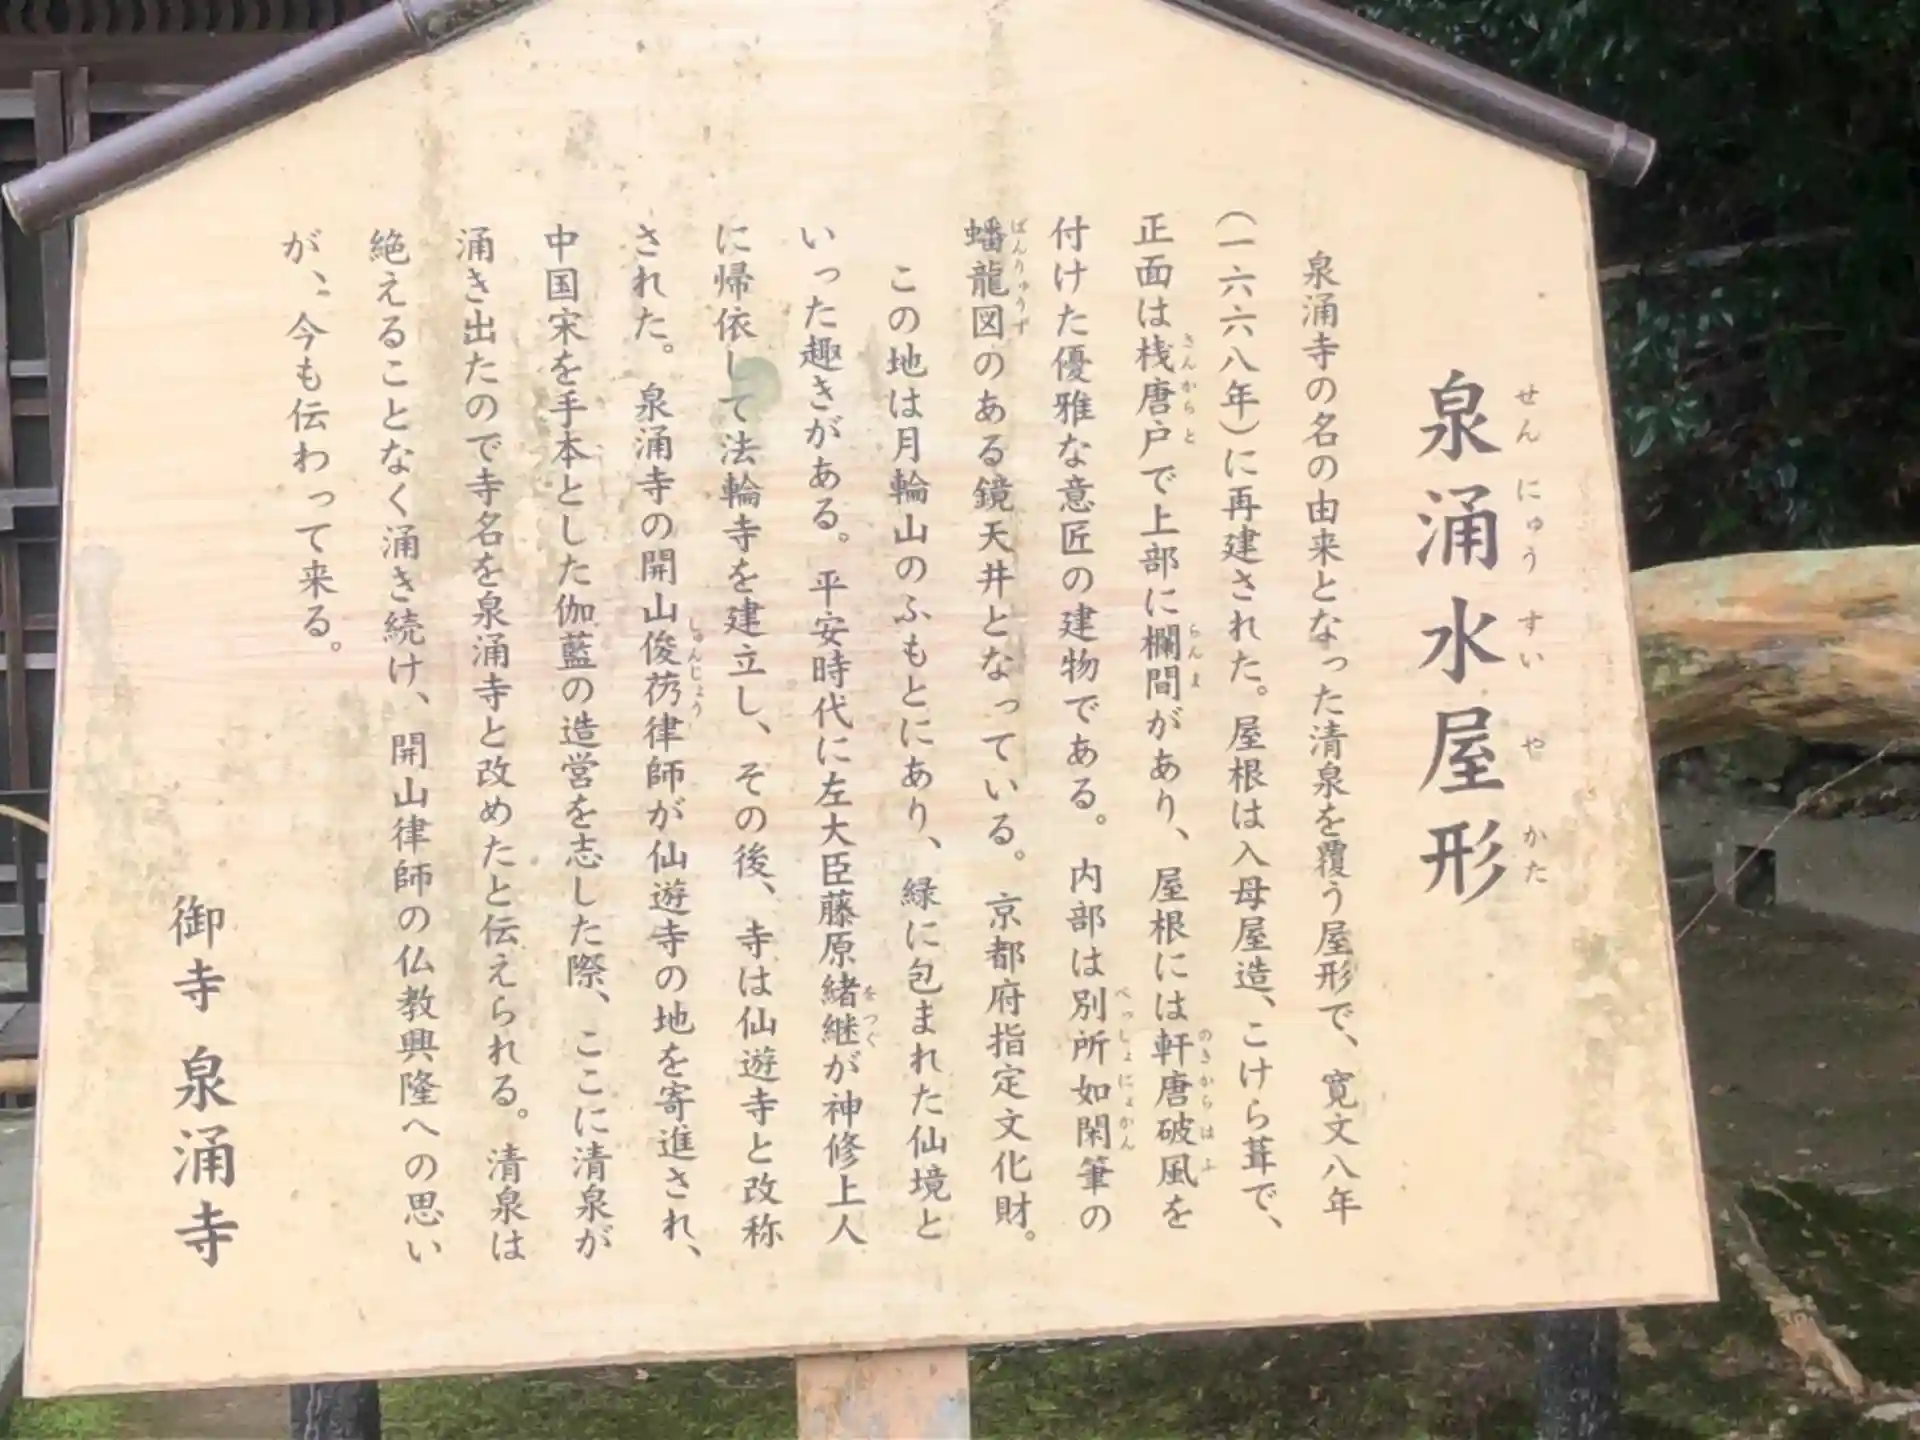 泉涌水屋形
せんにゅうすいやかた
泉涌寺の名の由来となった清泉を覆う屋形で、寛文八年
(一六六八年)に再建された。屋根は入母屋造、こけら葺で、
正面は桟唐戸で上部に欄間があり、屋根には軒唐破風を
さんからと
らんま
のきからはふ
付けた優雅な意匠の建物である。内部は別所如閑筆の
べっしょにょかん
蟠龍図のある鏡天井となっている。京都府指定文化財。
ばんりゅうず
この地は月輪山のふもとにあり、緑に包まれた仙境と
いった趣きがある。平安時代に左大臣藤原緒継が神修上人
をつぐ
に帰依して法輪寺を建立し、その後、寺は仙遊寺と改称
された。泉涌寺の開山俊芿律師が仙遊寺の地を寄進され、
しゅんじょう
中国宋を手本とした伽藍の造営を志した際、ここに清泉が
涌き出たので寺名を泉涌寺と改めたと伝えられる。清泉は
絶えることなく涌き続け、開山律師の仏教興隆への思い
が、今も伝わって来る。
御寺 泉涌寺